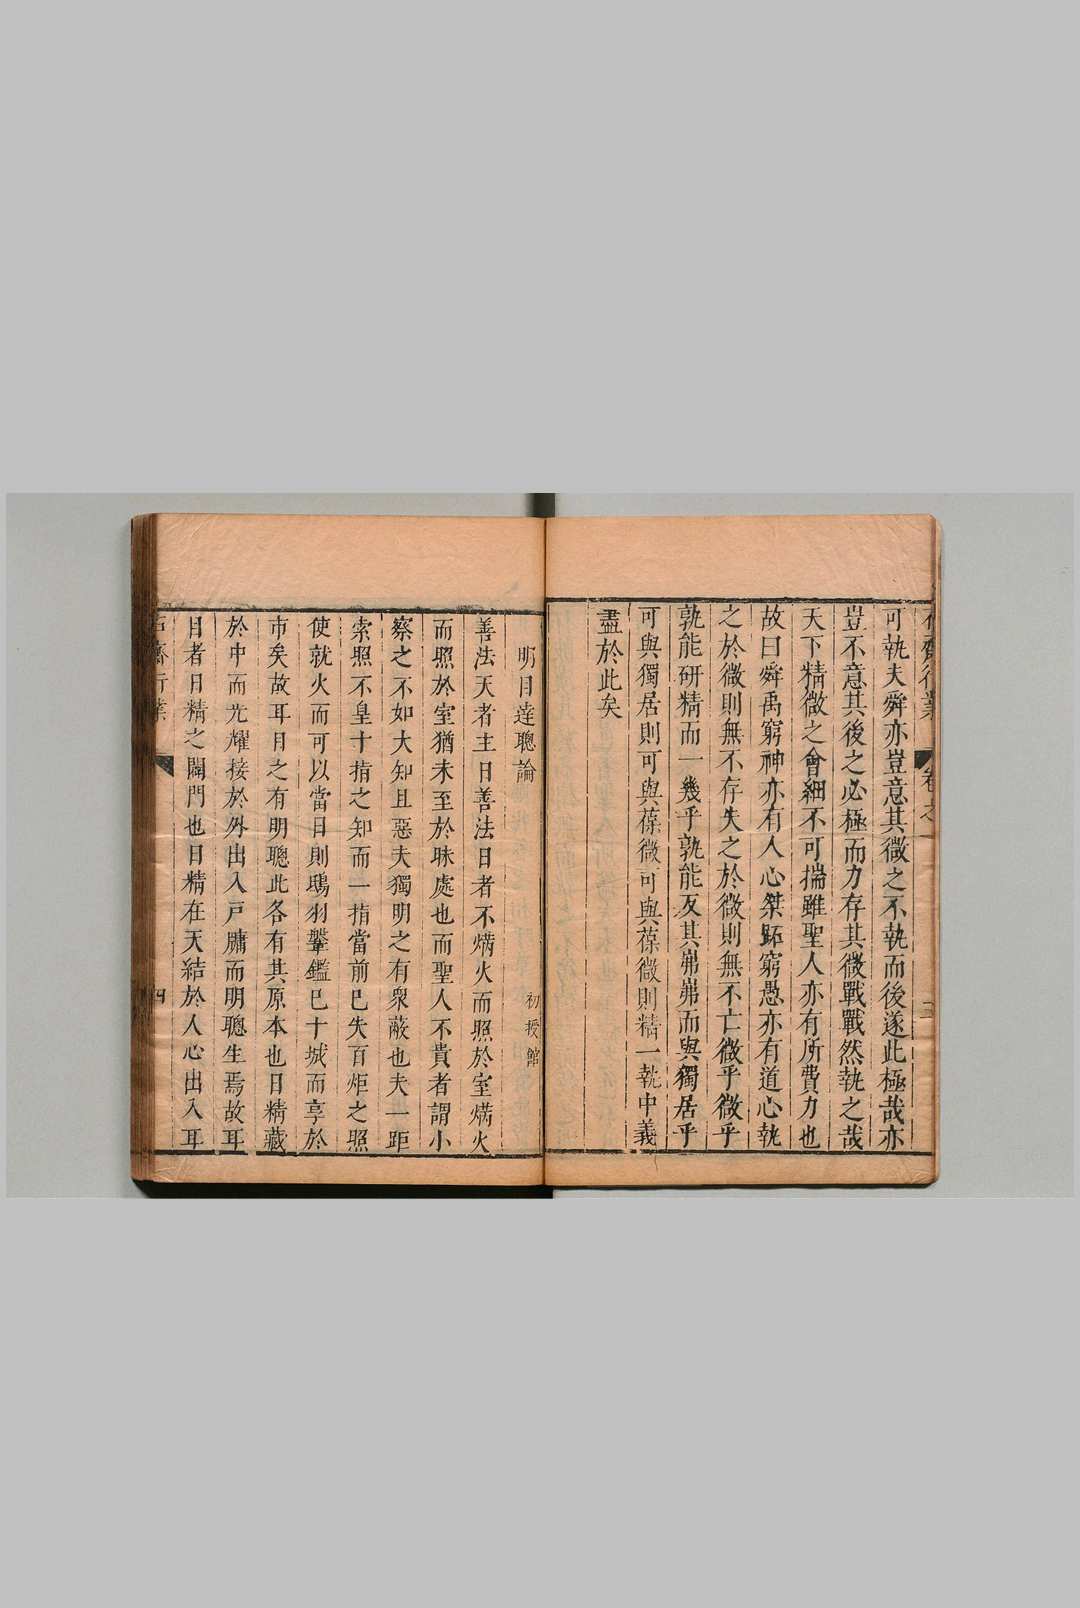 可執夫舜亦豈意其微之不執而後遂此極哉亦
豈不意其後之必極而力存其微戰戰然執之哉
天下精微之會細不可揣雖聖人亦有所費力也
故曰舜禹窮神亦有人心桀跖窮愚亦有道心執
之於微則無不存失之於微則無不亡微乎微乎
孰能研精而一幾乎孰能反其岪岪而與獨居乎
可與獨居則可與葆微可與葆微則精一執中義
盡於此矣
明目達聰論　初授館
善法天者主日善法日者不爝火而照於室爝火
而照於室猶未至於昧處也而聖人不貴者謂小
察之不如大知且惡夫獨明之有衆蔽也夫一距
索照不皇十指之知而一指當前已失百炬之照
使就火而可以當日則鴟羽鑿鑑已十城而享於
市矣故耳目之有明聰此各有其原本也日精藏
於中而光耀接於外出入戸牖而明聰生焉故耳
目者日精之闢門也日精在天結於人心出入耳
石齋行業
四